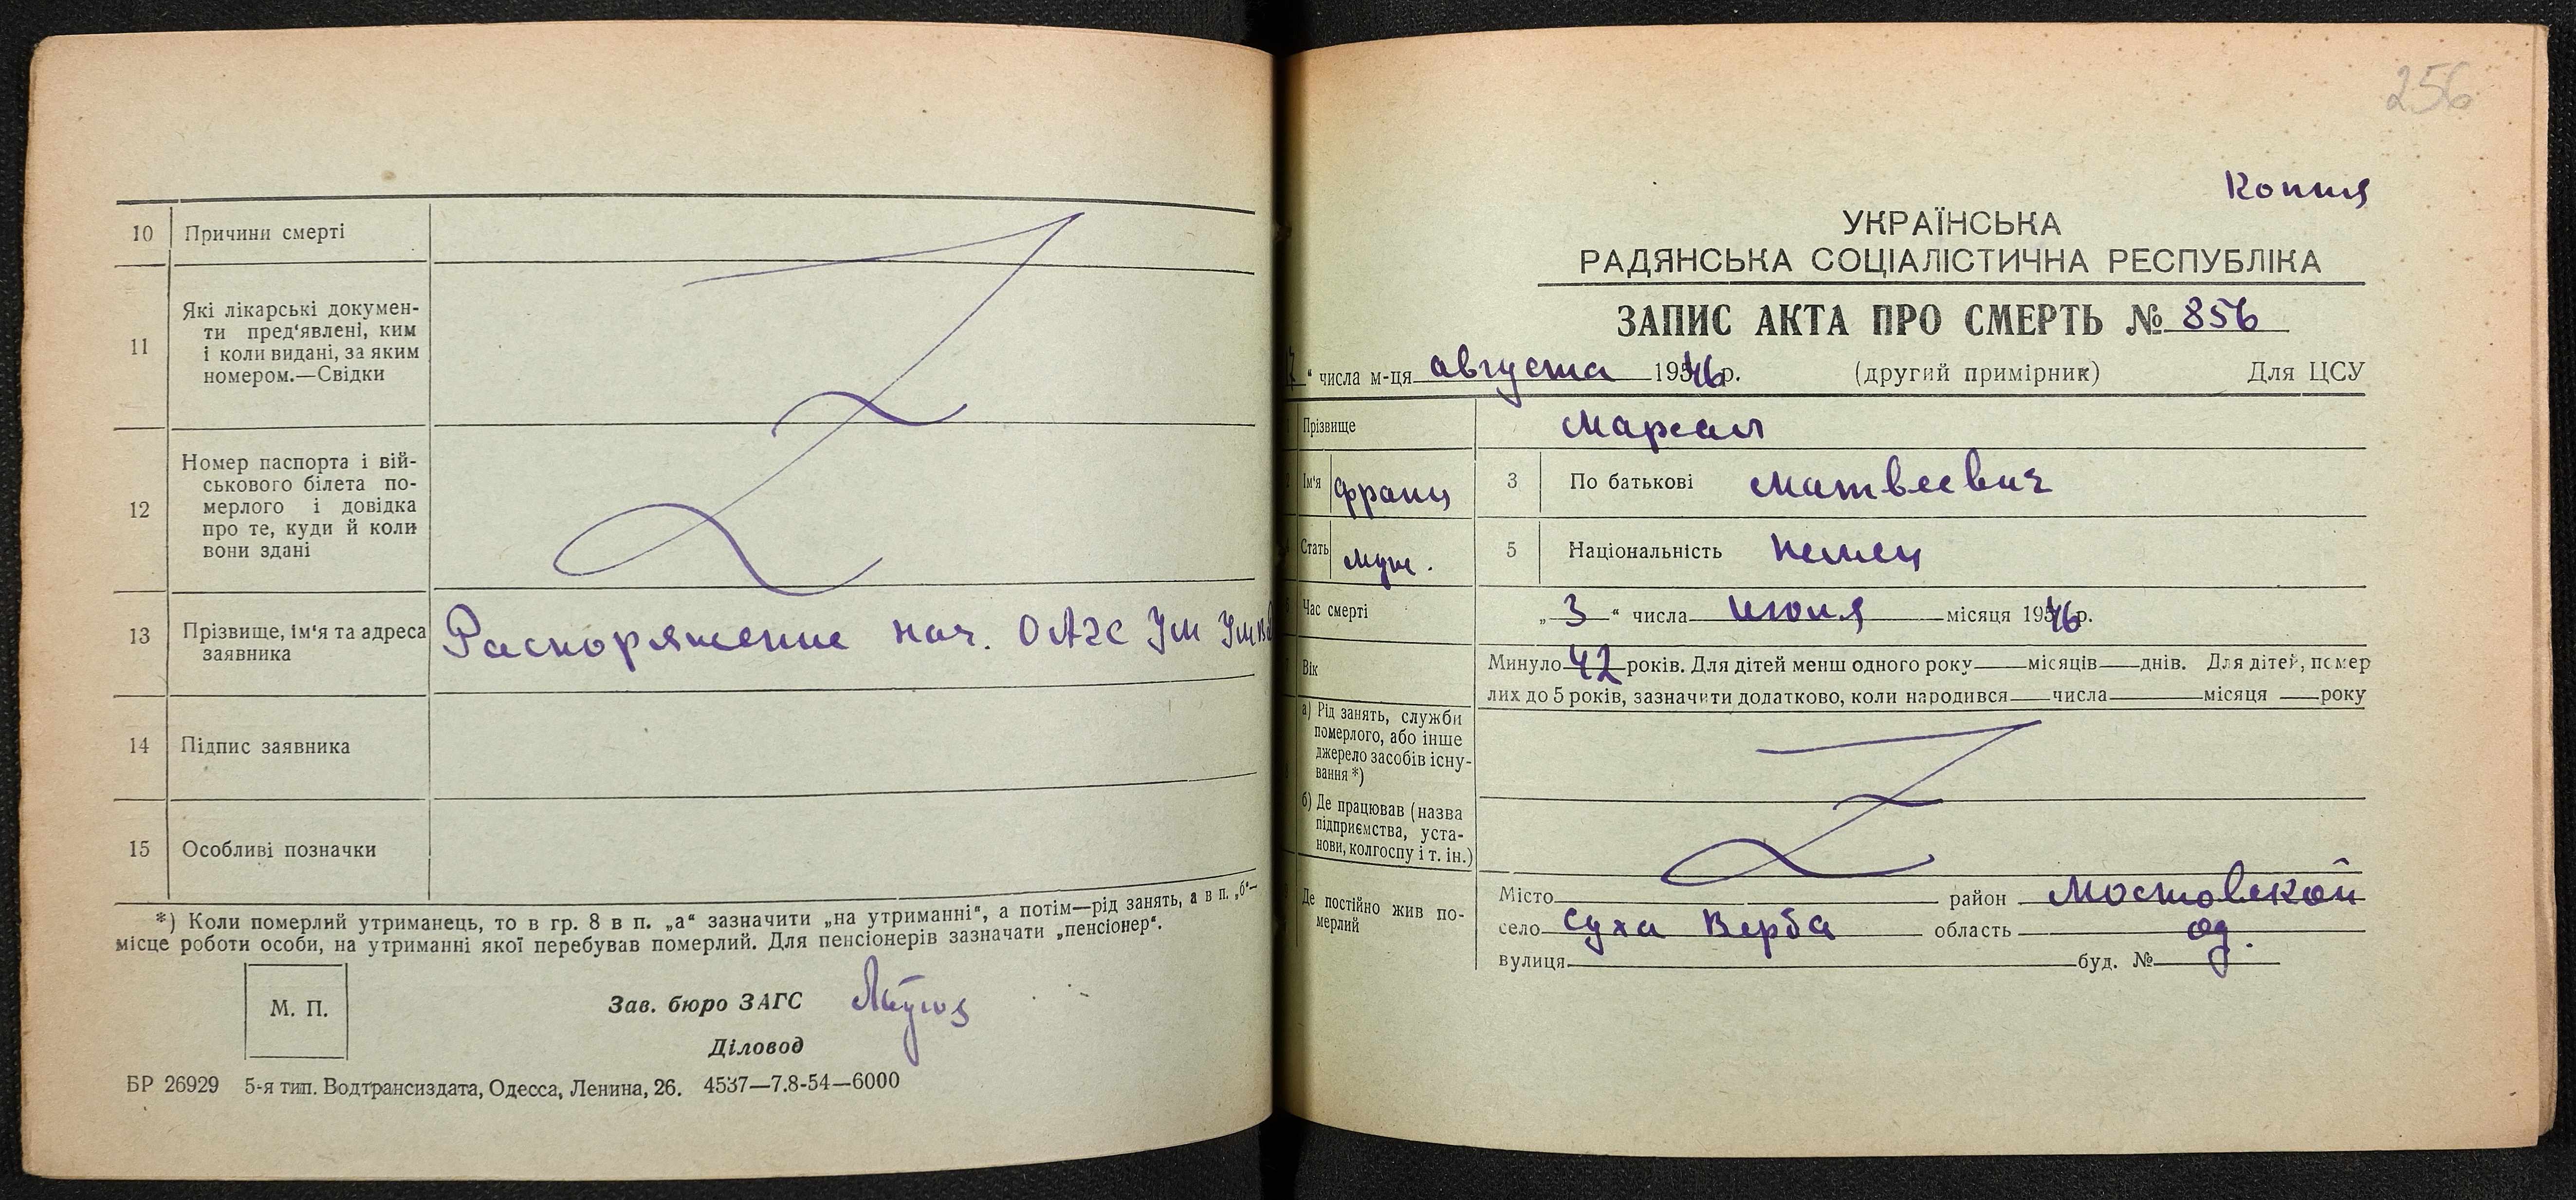 10 Причини смерті
11 Які лікарські докумен-
ти пред'явлені, ким
і коли видані, за яким
номером.—Свідки
12 Номер паспорта і вій-
ськового білета по-
мерлого і довідка
про те, куди й коли
вони здані
13 Прізвище, ім'я та адреса
заявника
Распоряжение нач. ОАГС УМ
14 Підпис заявника
15 Особливі позначки
*) Коли померлий утриманець, то в гр. 8 в п. „а“ зазначити „на утриманні“, а потім—рід занять, а в п. „б“—
місце роботи особи, на утриманні якої перебував померлий. Для пенсіонерів зазначати „пенсіонер“.
М. П.
Зав. бюро ЗАГС
Діловод
БР 26929 5-я тип. Водтрансиздата, Одесса, Ленина, 26. 4537—7.8-54—6000
256
Копия
УКРАЇНСЬКА
РАДЯНСЬКА СОЦІАЛІСТИЧНА РЕСПУБЛІКА
ЗАПИС АКТА ПРО СМЕРТЬ № 856
“ числа м-ця августа 1946р. (другий примірник) Для ЦСУ
Прізвище
Ім'я Франц 3 По батькові Матвеевич
Стать муж. 5 Національність немец
Час смерті „3“ числа июля місяця 1946р.
Вік Минуло 42 років. Для дітей менш одного року місяців днів. Для дітей, помер
лих до 5 років, зазначити додатково, коли народився числа місяця року
а) Рід занять, служби
померлого, або інше
джерело засобів існу-
вання *)
б) Де працював (назва
підприємства, уста-
нови, колгоспу і т. ін.)
Де постійно жив по-
мерлий
Місто район Мостовской
село Суха Верба область од.
вулиця буд. №